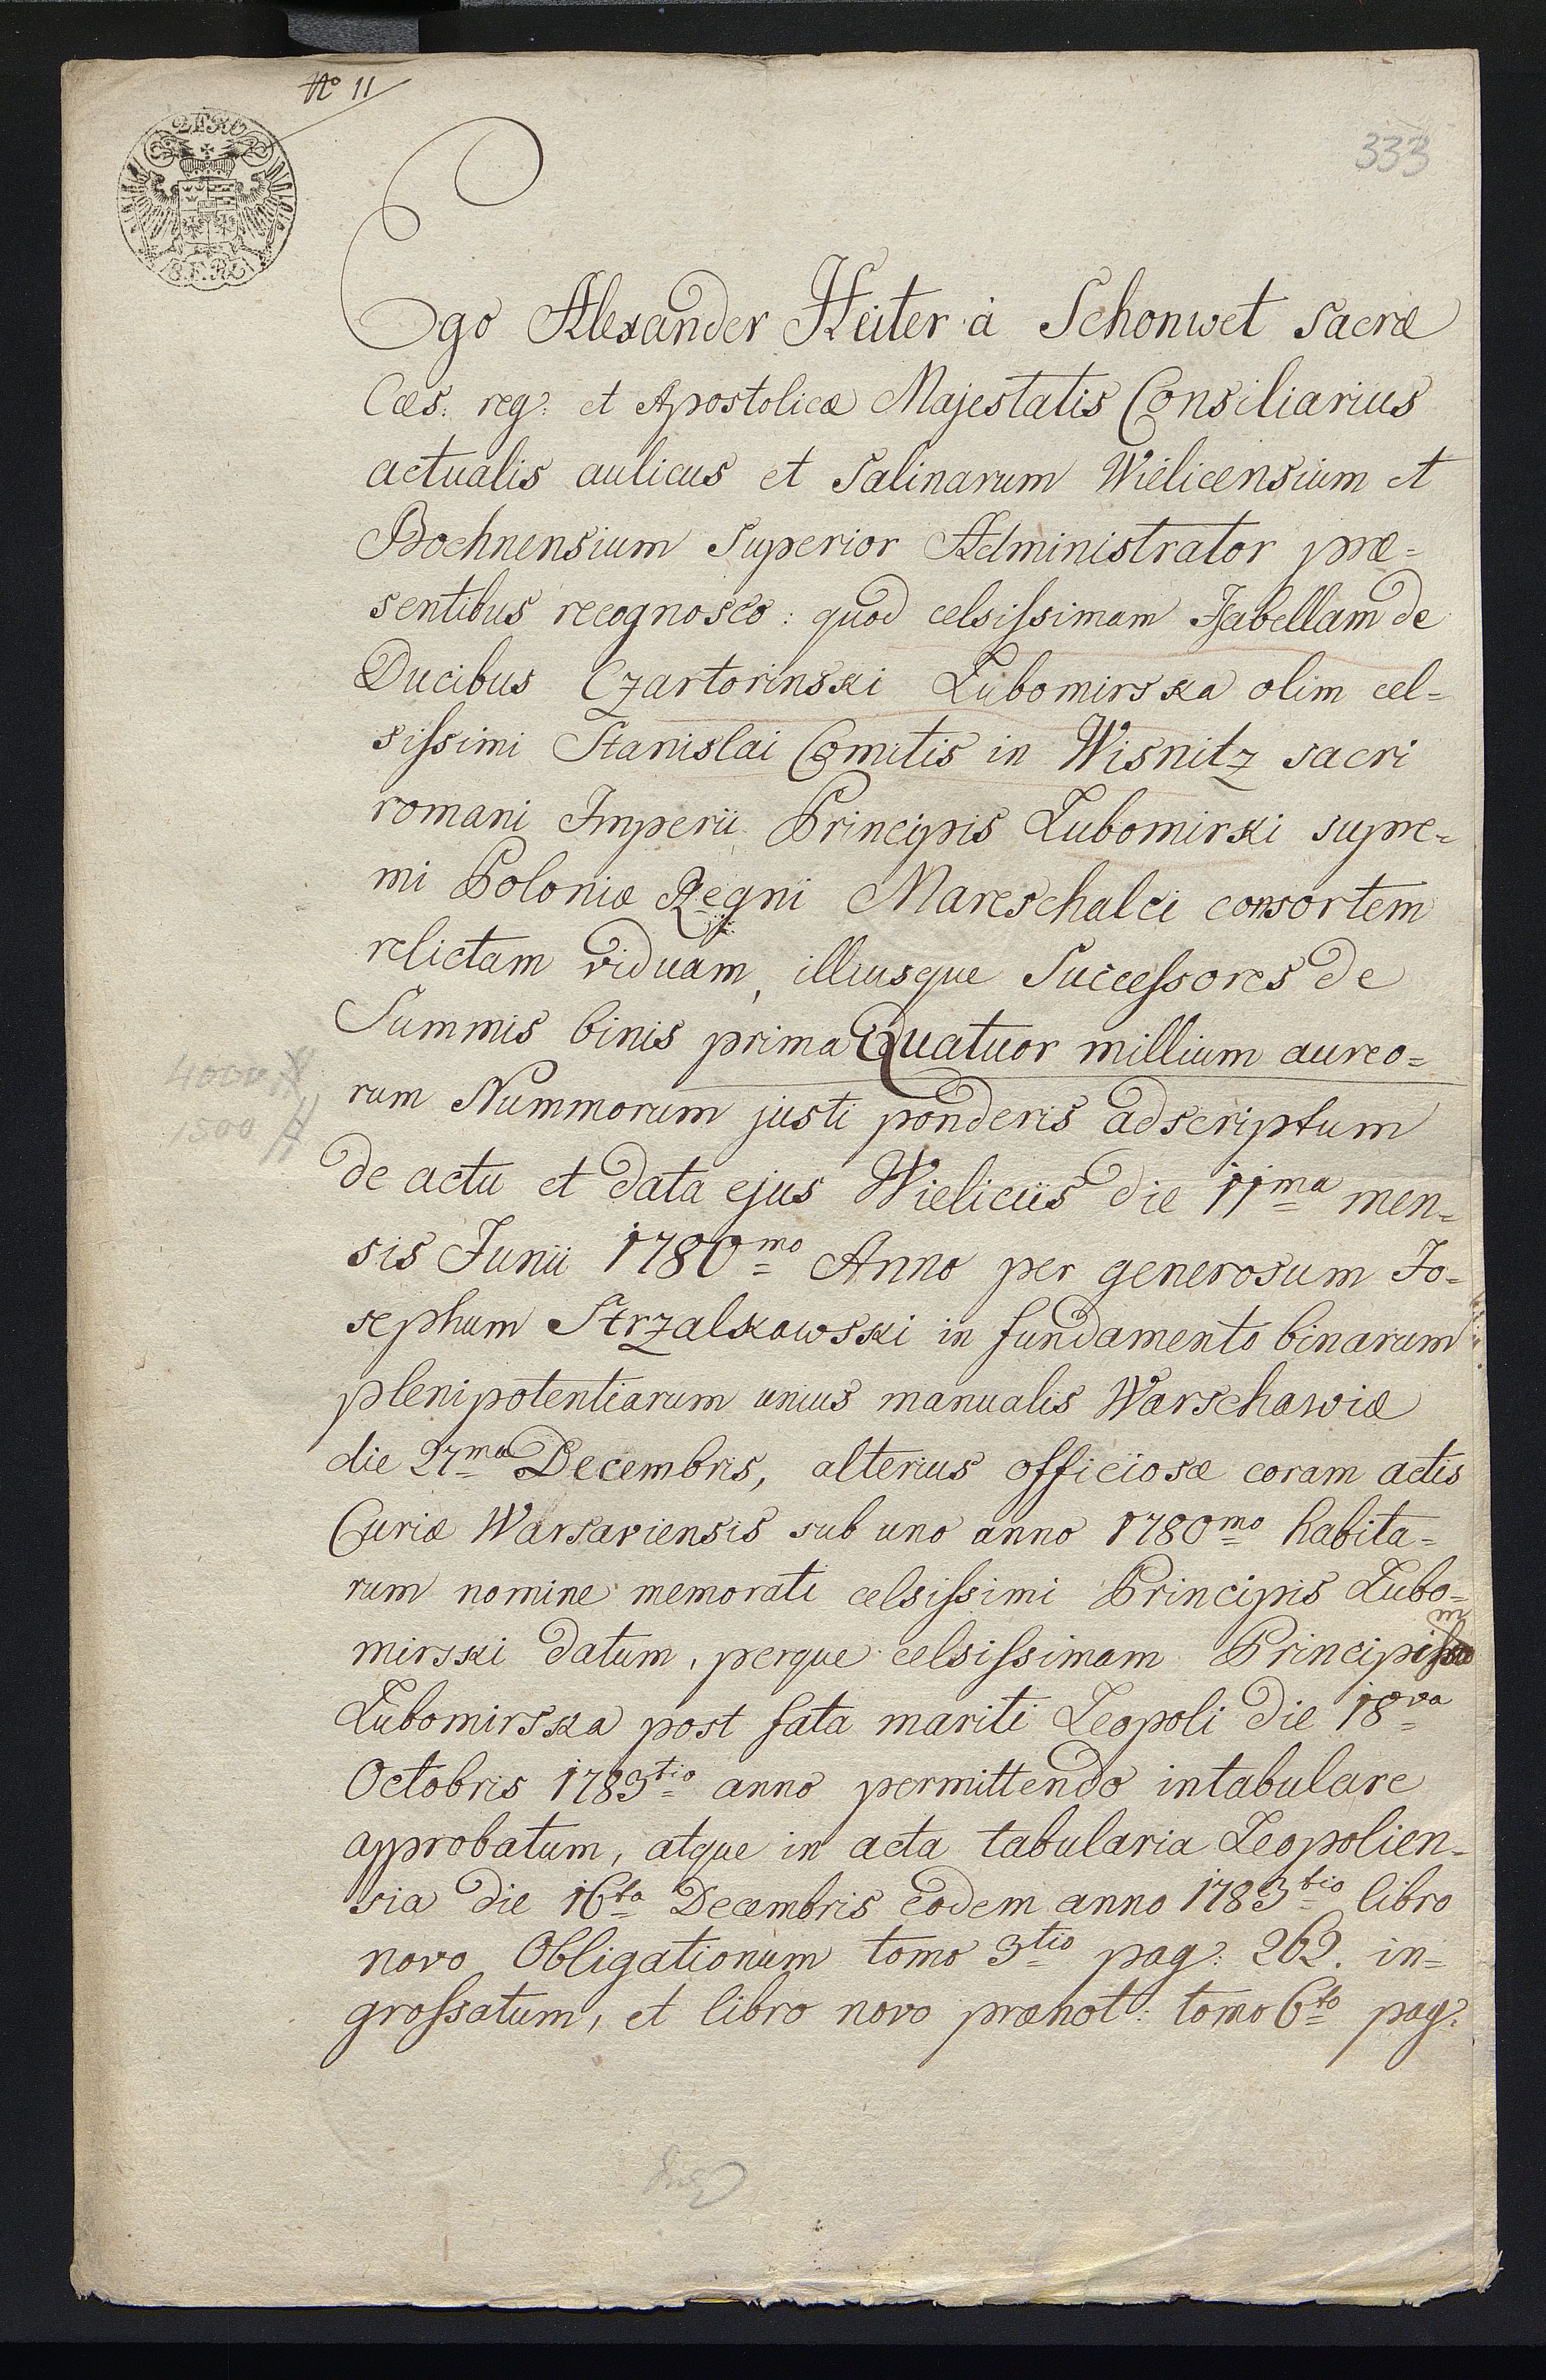 No 11
333
Ego Alexander Heiter à Schonwet Sacræ
Cæs: reg: et Apostolicæ Majestatis Consiliarius
actualis aulicus et Salinarum Wielicensium et
Bochnensium Superior Administrator præ=
sentibus recognosco: quod celsissimam Isabellam de
Ducibus Czartorinski Lubomirska olim cel=
sissimi Stanislai Comitis in Wisnitz sacri
romani Imperii Principis Lubomirski supre=
mi Poloniæ Regni Mareschalci consortem
relictam viduam, illiusque Successores de
Summis binis prima Quatuor millium aureo=
4000 #
rum Nummorum justi ponderis adscriptum
1500 #
de actu et data ejus Wieliciis die 11ma men=
sis Junii 1780mo Anno per generosum Jo=
sephum Strzalkowski in fundamento binarum
plenipotentiarum unius manualis Warschawiæ
die 27ma Decembris, alterius officiosæ coram actis
Curiæ Warsaviensis sub uno anno 1780mo habita=
rum nomine memorati celsissimi Principis Lubo=
mirski datum, perque celsissimam
Lubomirska post fata mariti Leopoli die 18va
Octobris 1783tio anno permittendo intabulare
approbatum, atque in acta tabularia Leopolien=
sia die 16ta Decembris eodem anno 1783tio libro
novo Obligationum tomo 3tio pag: 262. in=
grossatum, et libro novo prænot: tomo 6to pag: